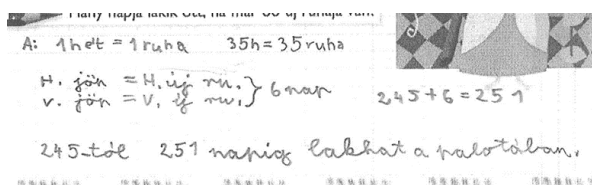 Hány napja lakik ott, ha már 35 új ruhája van?
A: 1 hét = 1 ruha 35h = 35 ruha
H. jön = H. új ru. } 6 nap
V. jön = V. új ru.
245 + 6 = 251
245-től 251 napig lakhat a palotában.